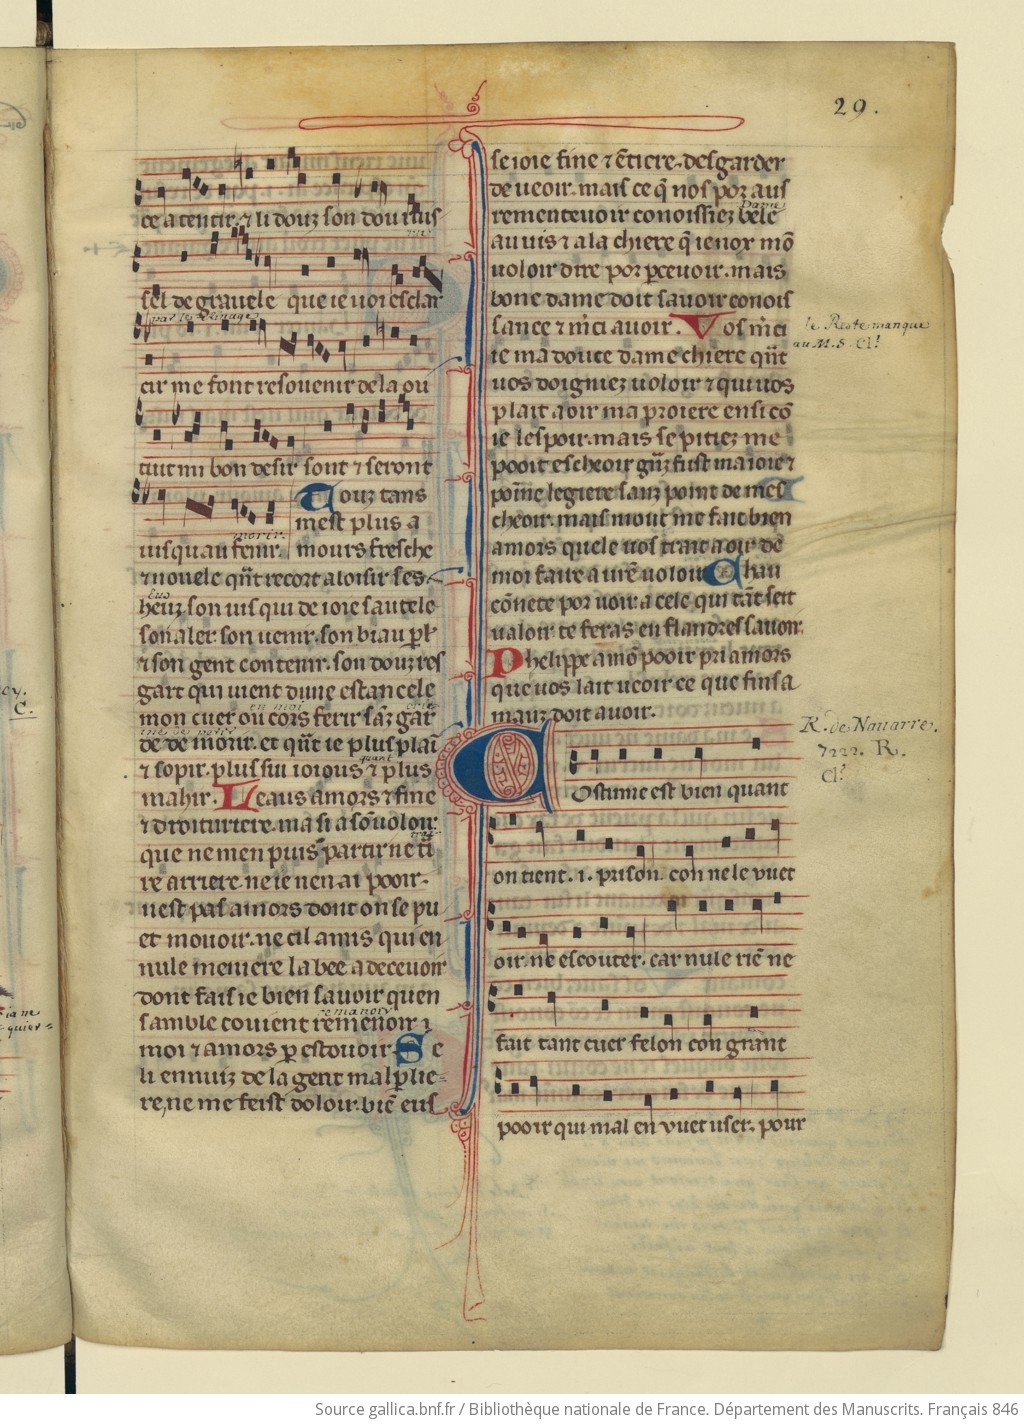 29.
ce a tentir. ⁊ li douz son dou ruis
sel de gravele que ie voi esclar
par le rivage
cir me font resovenir de la ou
tuit mi bon desir sont ⁊ seront
Touz tans
mest plus a
iusquau fenir. mours fresche
morir.
⁊ novele qñt recort a loisir ses
euz
heuz. son vis qui de ioie sautele
son aler son venir. son biau p̱ler
⁊ son gent contenir. son douz res
gart qui vient dune estancele
mon cuer ou cors ferir sãz gar
en moi
de de morir. et qñt ie plus plaĩ
⁊ sopir. plus sui ioious ⁊ plus
quant
mahir. Leaus amors ⁊ fine
⁊ droituriere. ma si a sõ voloir
que ne men puis partir ne ti
re arriere. ne ie nen ai pooir.
nest pas amors dont on se pu
et movoir. ne cil amis qui en
nule meniere la bee a decevoir
dont fais ie bien savoir quen
samble covient remenoir ⁊
remanoir
moi ⁊ amors p estovoir. Se
li ennuiz de la gent malp̱lie-
re, ne me feist doloir. biẽ eus
se ioie fine ⁊ ẽtiere. desgarder
de veoir. mais ce q̃ nos por aus
rementevoir conoissiez bele
Dame
au vis ⁊ a la chiere q̃ ie nox mõ
voloir dire por p̱cevoir. mais
bone dame doit savoir conois
sance ⁊ m̃ci avoir. Vos m̃ci
le Reste manque
au M. S. Cl!
ie ma douce dame chiere qñt
vos doigniez voloir ⁊ qui vos
plait a oir ma proiere ensi cõ
ie lespoir. mais se pitiez me
pooit escheoir gñz fust ma ioie ⁊
poĩne legiere sanz point de mes
cheoir. mais mout me fait bien
amors quele vos trait a oir de
moi faire a vr̃e voloir Chan
cõnete por voir a cele qui tãt seit
valoir te feras en flandres savoir.
Phelippe amõ pooir pri amors
que vos lait veoir ce que fins a
manz doit avoir.
R. de Navarre.
7222. R.
Cl!
Costume est bien quant
on tient .i. prison. con ne le vuet
oir. ne escouter. car nule riẽ ne
fait tant cuer felon con grant
pooir qui mal en vuet user. pour
Source gallica.bnf.fr / Bibliothèque nationale de France. Département des Manuscrits. Français 846